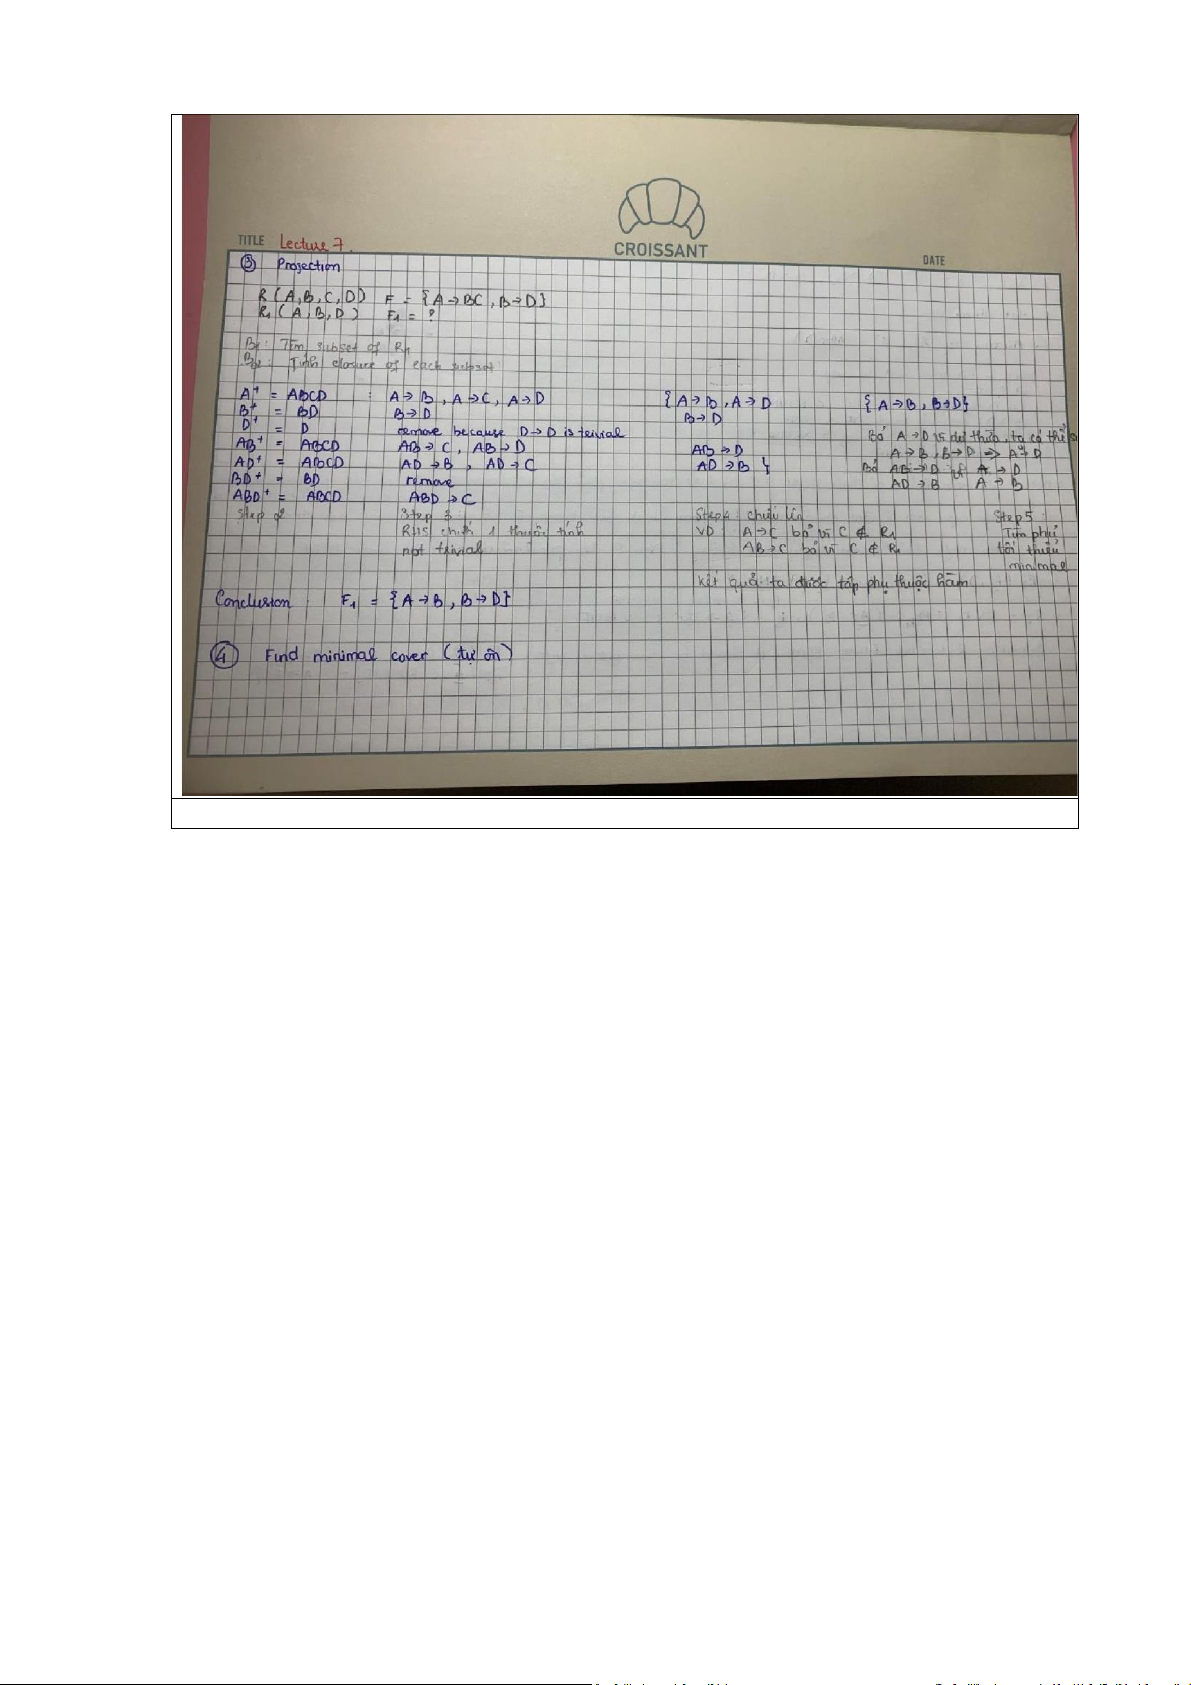 CROISSANT
TITLE Lecture 7.
DATE
③ Projection
R (A,B,C,D) F = {A→BC, B→D}
R₁ (A,B,D) F₁ = ?
B1: Tìm subset of R₁
B2: Tính closure of each subset
A⁺ = ABCD : A→B, A→C, A→D {A→B, A→D {A→B, B→D}
B⁺ = BD B→D B→D
D⁺ = D remove because D→D is trivial Bỏ A→D vì dư thừa, ta có thể
AB⁺ = ABCD AB→C, AB→D AB→D A→B, B→D ⇒ A→D
AD⁺ = ABCD AD→B, AD→C AD→B } Bỏ AB→D vì A→D
BD⁺ = BD remove AD→B A→B
ABD⁺ = ABCD ABD→C
Step 2 Step 3 Step4: chiếu lên Step 5:
RHS chỉ 1 thuộc tính VD A→C bỏ vì C ∉ R₁ Tìm phủ
not trivial AB→C bỏ vì C ∉ R₁ tối thiểu
minimal
kết quả ta được tập phụ thuộc hàm
Conclusion F₁ = {A→B, B→D}
④ Find minimal cover (tự ôn)